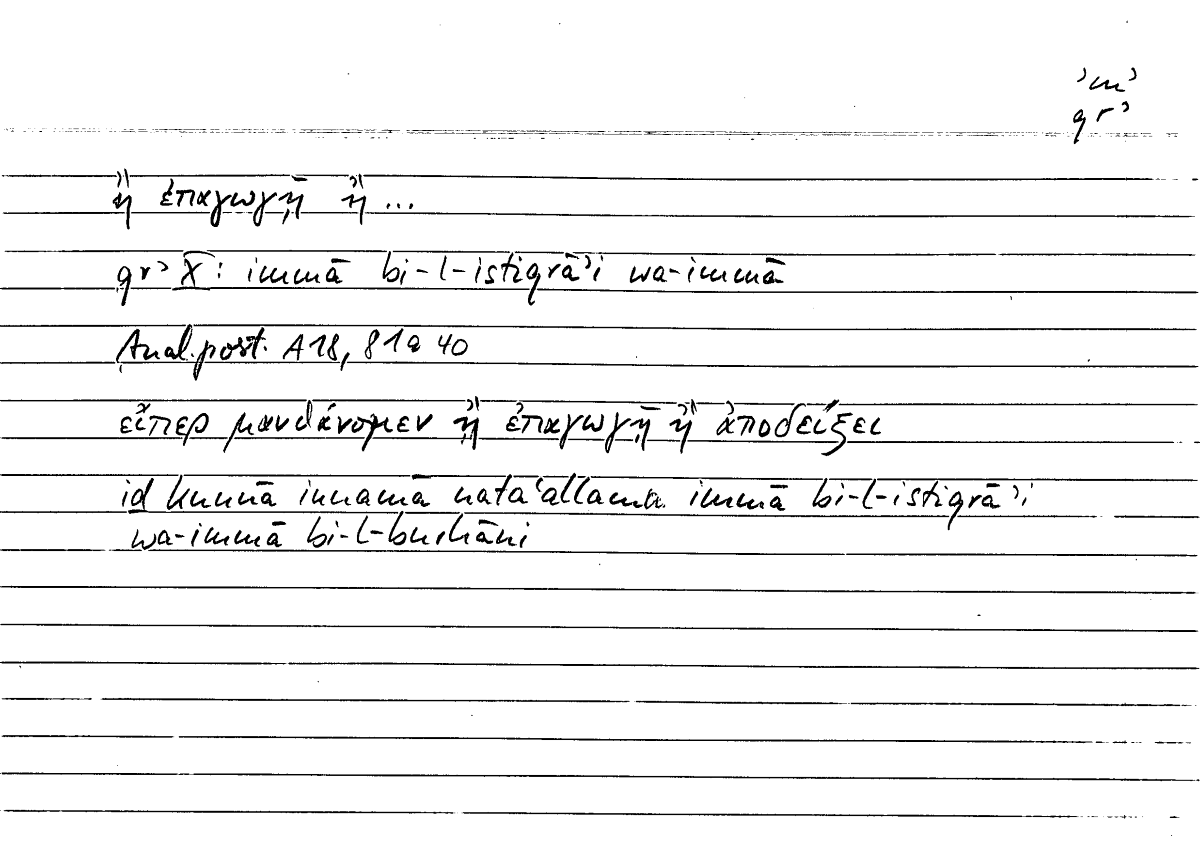 ʾmʾ
qrʾ
ἢ ἐπαγωγῇ ἢ ...
qrʾ X: immā bi-l-istiqrāʾi wa-immā
Anal. post. A 18, 81a 40
εἴπερ μανθάνομεν ἢ ἐπαγωγῇ ἢ ἀποδείξει
iḏ kunnā innamā nataʿallama immā bi-l-istiqrāʾi
wa-immā bi-l-burhāni